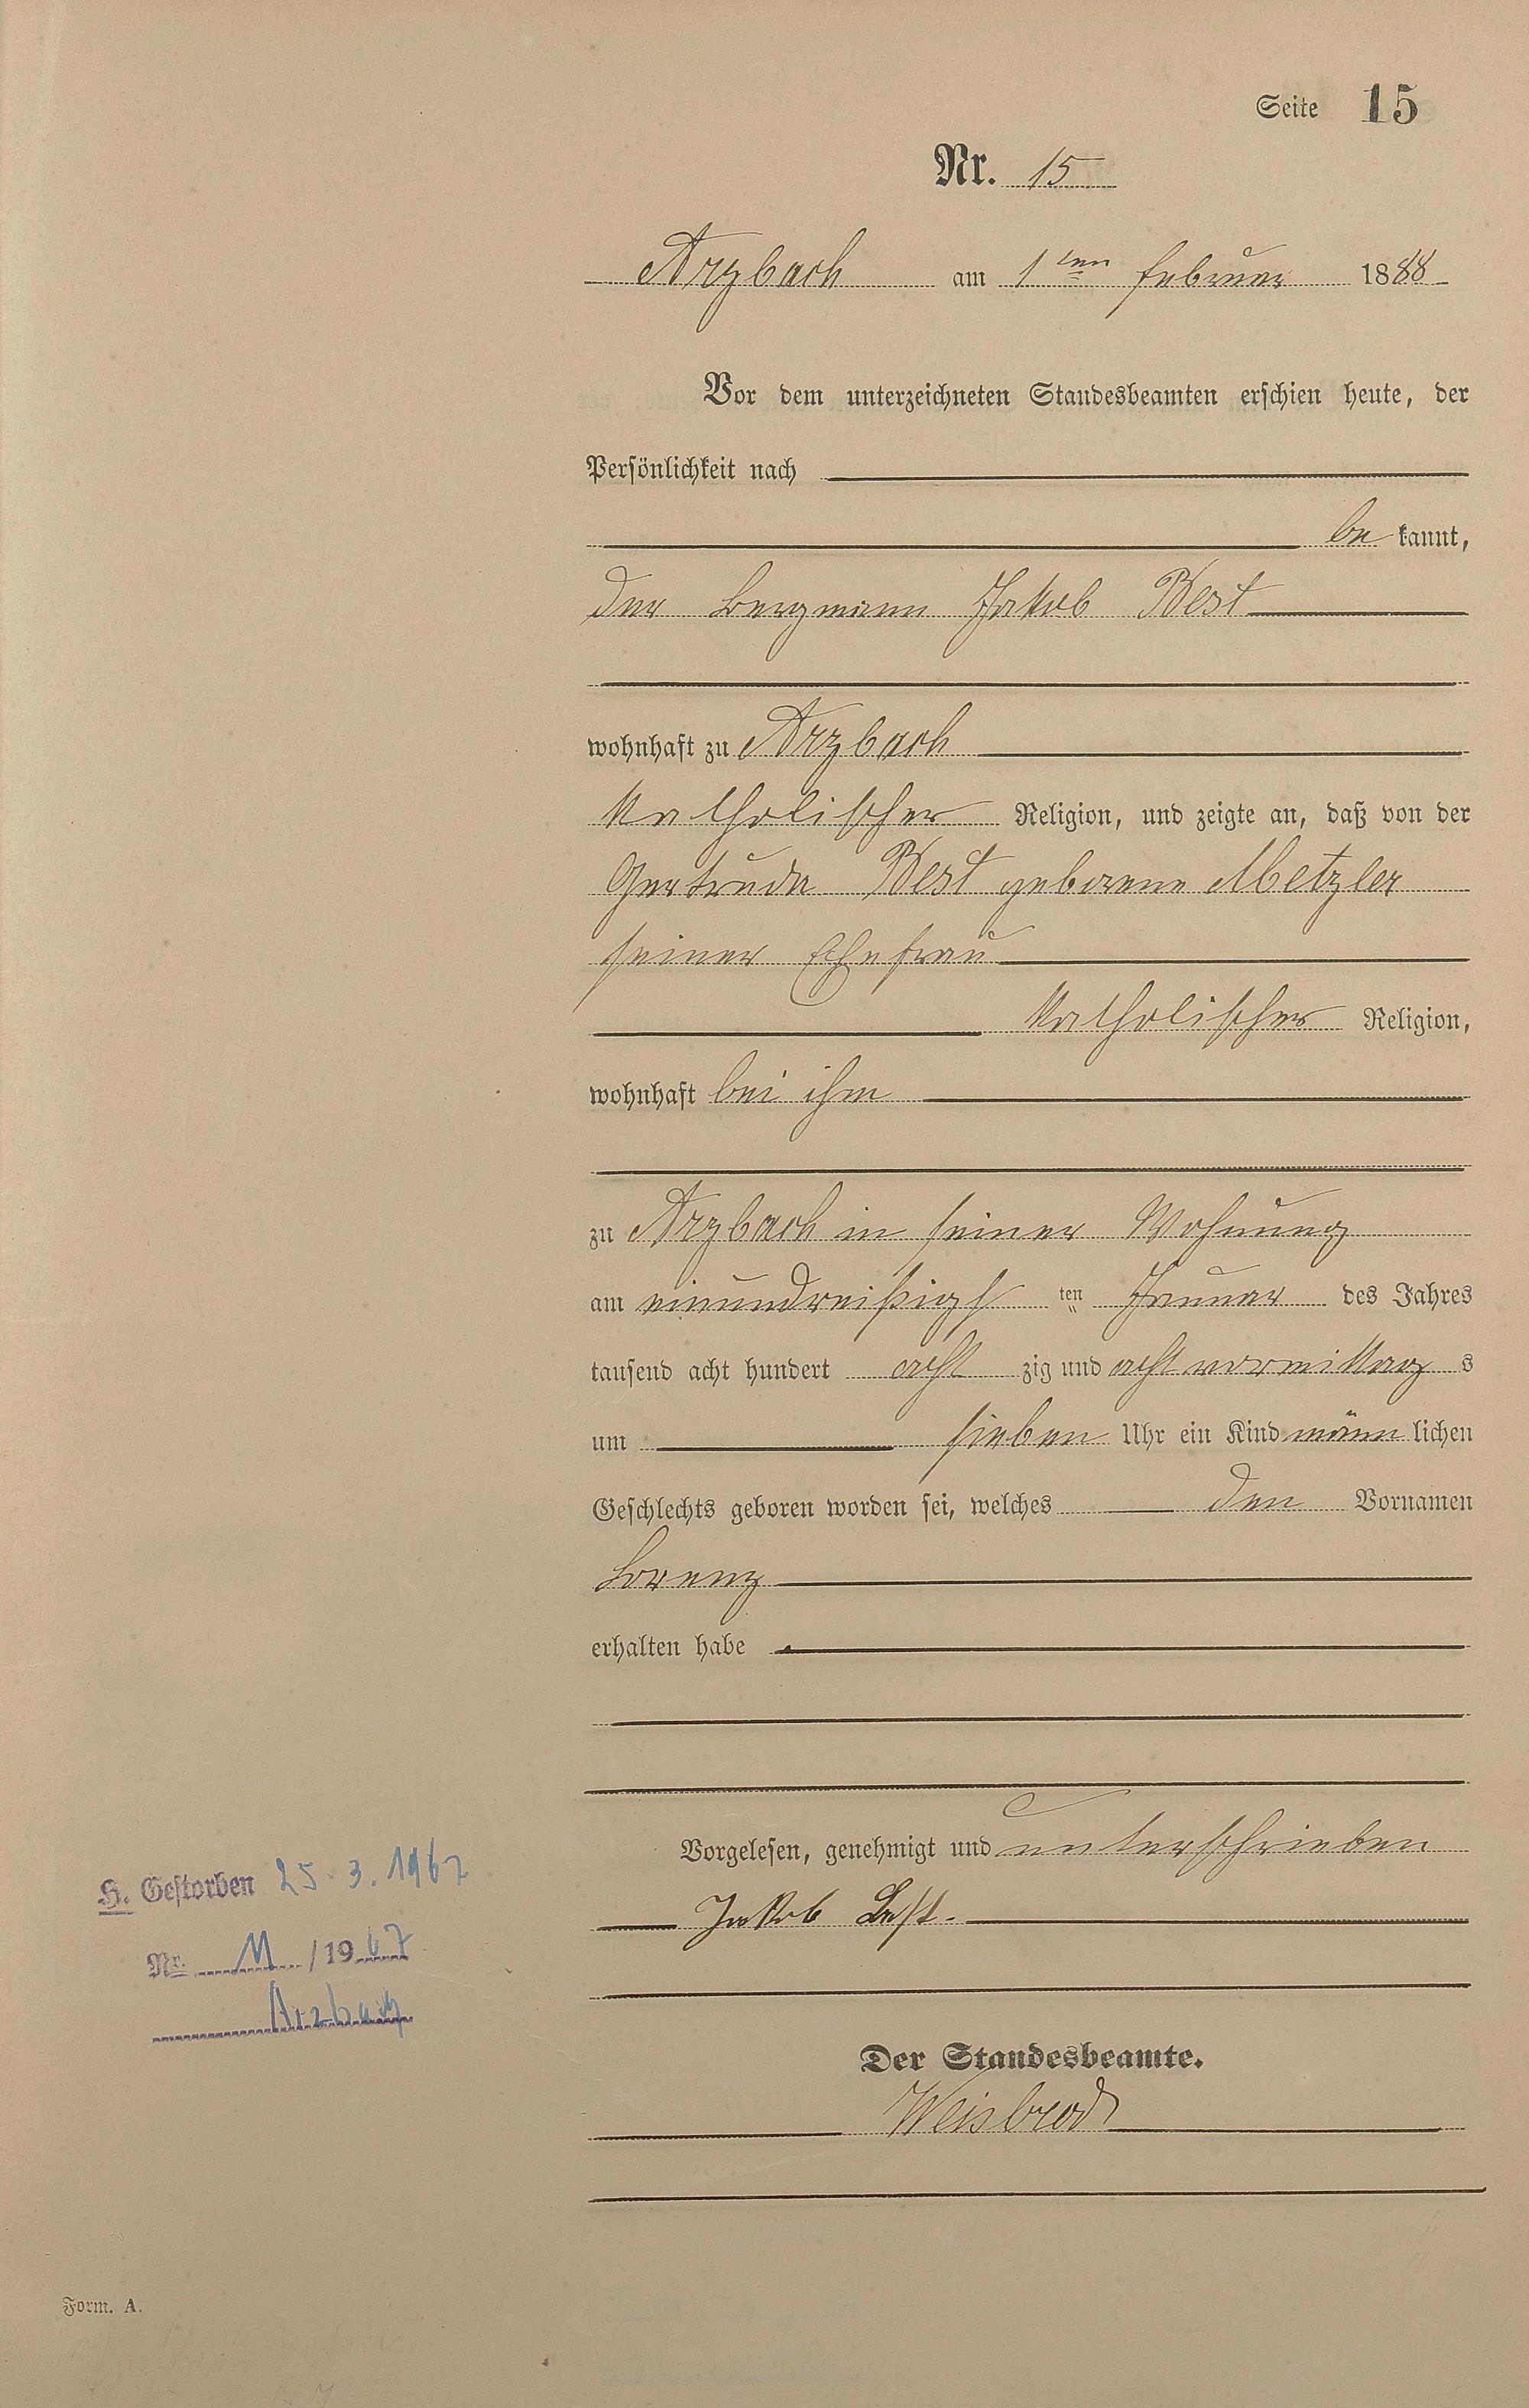 Seite 15
Nr. 15
Arzbach am 1ten Februar 1888
Vor dem unterzeichneten Standesbeamten erschien heute, der
Persönlichkeit nach
be kannt,
der Bergmann Jakob Best
wohnhaft zu Arzbach
katholischer Religion, und zeigte an, daß von der
Gertruda Best geborene Metzler
seiner Ehefrau
katholischer Religion,
wohnhaft bei ihm
zu Arzbach in seiner Wohnung
am einundreißigs ten Januar des Jahres
tausend acht hundert acht zig und acht vormittag s
um sieben Uhr ein Kind männ lichen
Geschlechts geboren worden sei, welches den Vornamen
Lorenz
erhalten habe
Vorgelesen, genehmigt und unterschrieben
Jakob Best.
Der Standesbeamte.
Weisbrod
H. Gestorben 25.3.1967
Nr. 11 /1967
Arzbach
Form. A.